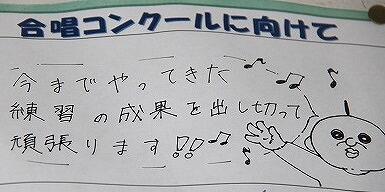 合唱コンクールに向けて
今までやってきた
練習の成果を出し切って
頑張ります!!